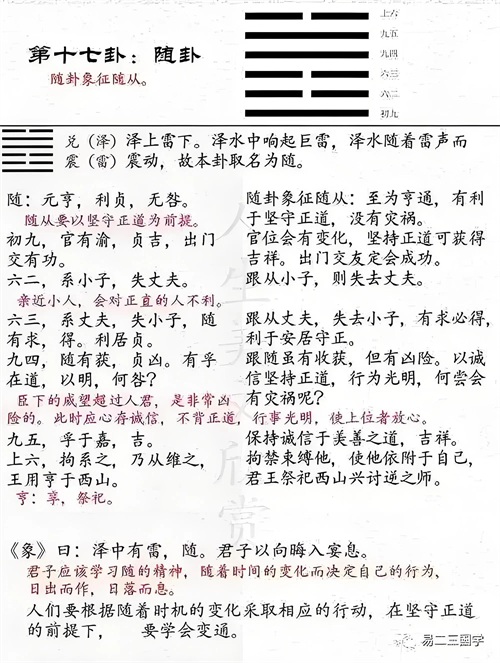 第十七卦：随卦
随卦象征随从。
上六
九五
九四
六三
六二
初九
兑（泽）泽上雷下。泽水中响起巨雷，泽水随着雷声而
震（雷）震动，故本卦取名为随。
随：元亨，利贞，无咎。
随从要以坚守正道为前提。
初九，官有渝，贞吉，出门
交有功。
六二，系小子，失丈夫。
亲近小人，会对正直的人不利。
六三，系丈夫，失小子，随
有求，得。利居贞。
九四，随有获，贞凶。有孚
在道，以明，何咎？
臣下的威望超过人君，是非常凶
险的。此时应心存诚信，不背正道，行事光明，使上位者放心。
九五，孚于嘉，吉。
上六，拘系之，乃从维之，
王用亨于西山。
亨：享，祭祀。
随卦象征随从：至为亨通，有利
于坚守正道，没有灾祸。
官位会有变化，坚持正道可获得
吉祥。出门交友定会成功。
跟从小子，则失去丈夫。
跟从丈夫，失去小子，有求必得，
利于安居守正。
跟随虽有收获，但有凶险。以诚
信坚持正道，行为光明，何尝会
有灾祸呢？
保持诚信于美善之道，吉祥。
拘禁束缚他，使他依附于自己，
君王祭祀西山兴讨逆之师。
《象》曰：泽中有雷，随。君子以向晦入宴息。
君子应该学习随的精神，随着时间的变化而决定自己的行为，
日出而作，日落而息。
人们要根据随着时机的变化采取相应的行动，在坚守正道
的前提下，要学会变通。
人生美文欣赏
易二三国学